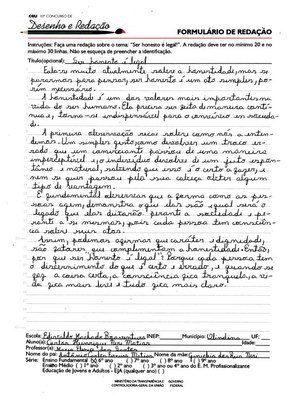 CGU 10º CONCURSO DE
Desenho e Redação
FORMULÁRIO DE REDAÇÃO
Instruções: Faça uma redação sobre o tema: "Ser honesto é legal!". A redação deve ter no mínimo 20 e no
máximo 30 linhas. Não se esqueça de preencher a identificação.
Título(opcional): Ser honesto é legal
Fala-se muito atualmente, sobre a honestidade, mas se
pararmos para pensar ser honesto é um ato simples, po-
rém necessário.
A honestidade é um dos valores mais importantes na
vida do ser humano. Ela precisa ser feita de maneira contí-
nua e, torna-se indispensável para o convívio em socieda-
de.
A primeira observação recai sobre como nós a enten-
demos. Um simples gesto, como devolver um troco er-
rado que um comerciante passou de uma maneira
imperceptível e, o indivíduo devolveu de um jeito espon-
tâneo e natural, sabendo que isso é o certo a fazer, e
nem se quer passou pela sua cabeça obter algum
tipo de vantagem.
É fundamental observar que a forma como as pes-
soas agem, demonstra o que elas são, qual será o
legado que elas deixarão, perante a sociedade e pe-
rante a si mesmas, pois cada pessoa tem consciên-
cia sobre seus atos.
Assim, podemos afirmar que caráter e dignidade,
são fatores que complementam a honestidade. Então,
por que ser honesto é legal? Porque cada pessoa tem
o discernimento do que é certo e errado, e quando se
age a coisa certa, a consciência fica tranquila, a vi-
da fica mais leve e tudo fica mais claro.
Escola: Edivaldo Machado Boaventura INEP: Município: Olindina UF:
Aluno(a): Carlos Henrique Reis Matias
Professor(a):
Nome do pai: Antônio Carlos Matias Nome da mãe:
Série: Ensino Fundamental ( ) 6º ano ( ) 7º ano ( ) 8º ano ( ) 9º ano
Ensino Médio ( ) 1º ano ( ) 2º ano ( ) 3º ano ou 4º ano do E. M. Profissionalizante
Educação de Jovens e Adultos - EJA (qualquer ano) ( )
MINISTÉRIO DA TRANSPARÊNCIA E GOVERNO
CONTROLADORIA-GERAL DA UNIÃO FEDERAL